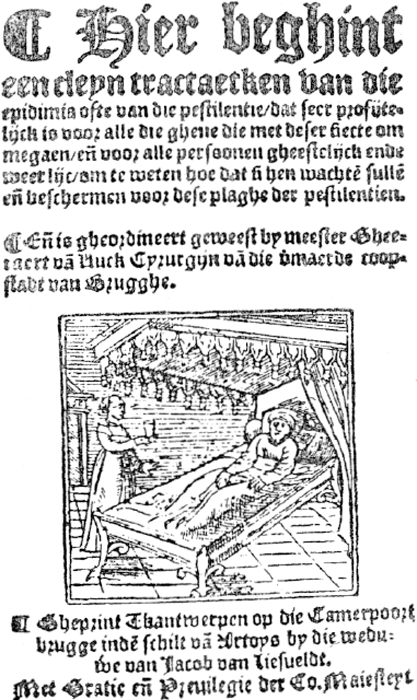 ¶ Hier beghint
een cleyn tractaetken van die
epidimia ofte van die pestilentie/dat seer profijte-
lijck is voor alle die ghene die met deser siecte om
megaen/en̄ voor alle personen gheestelijck ende
weerlijc/om te weten hoe dat si hen wachtē sullē
en̄ beschermen voor dese plaghe der pestilentien.
¶ En̄ is gheordineert geweest by meester Ghee-
raert vā Cyrurgijn vā die vermaerde coop-
stadt van Brugghe.
¶ Gheprint Thantwerpen op die Camerpoort
brugge indē schilt vā Artoys by die wedu-
we van Jacob van Liesueldt.
Met Gratie en̄ Preuilegie der Co. Maiesteyt